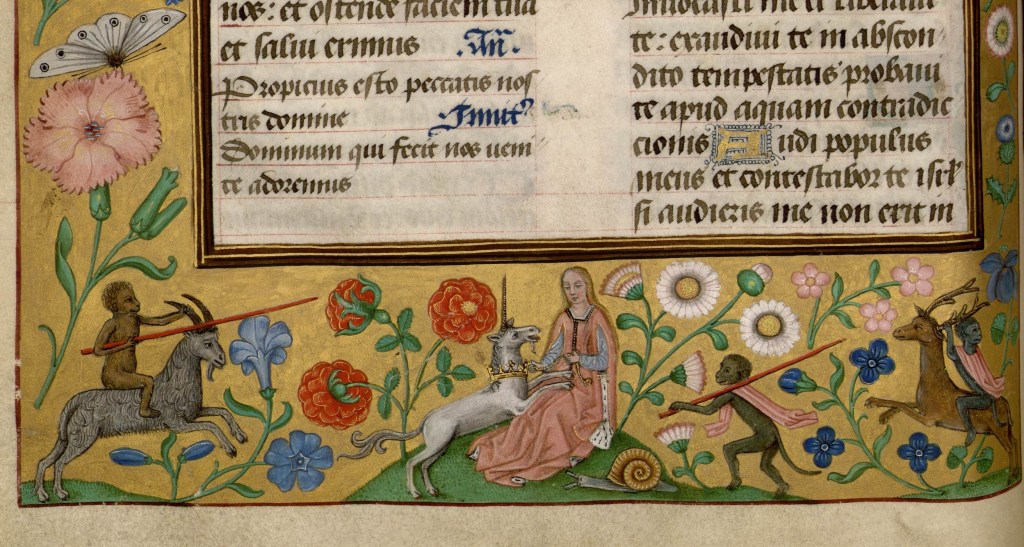 nos: et ostende faciem tua
et salui erimus An̄.
Propicius esto peccatis nos
tris domine Inuit͛
Dominum qui fecit nos ueni
te adoremus
te: exaudiui te in abscon
dito tempestatis probaui
te apud aquam contradic
cionis Audi populus
meus et contestabor te isrl̄
si audieris me non erit in